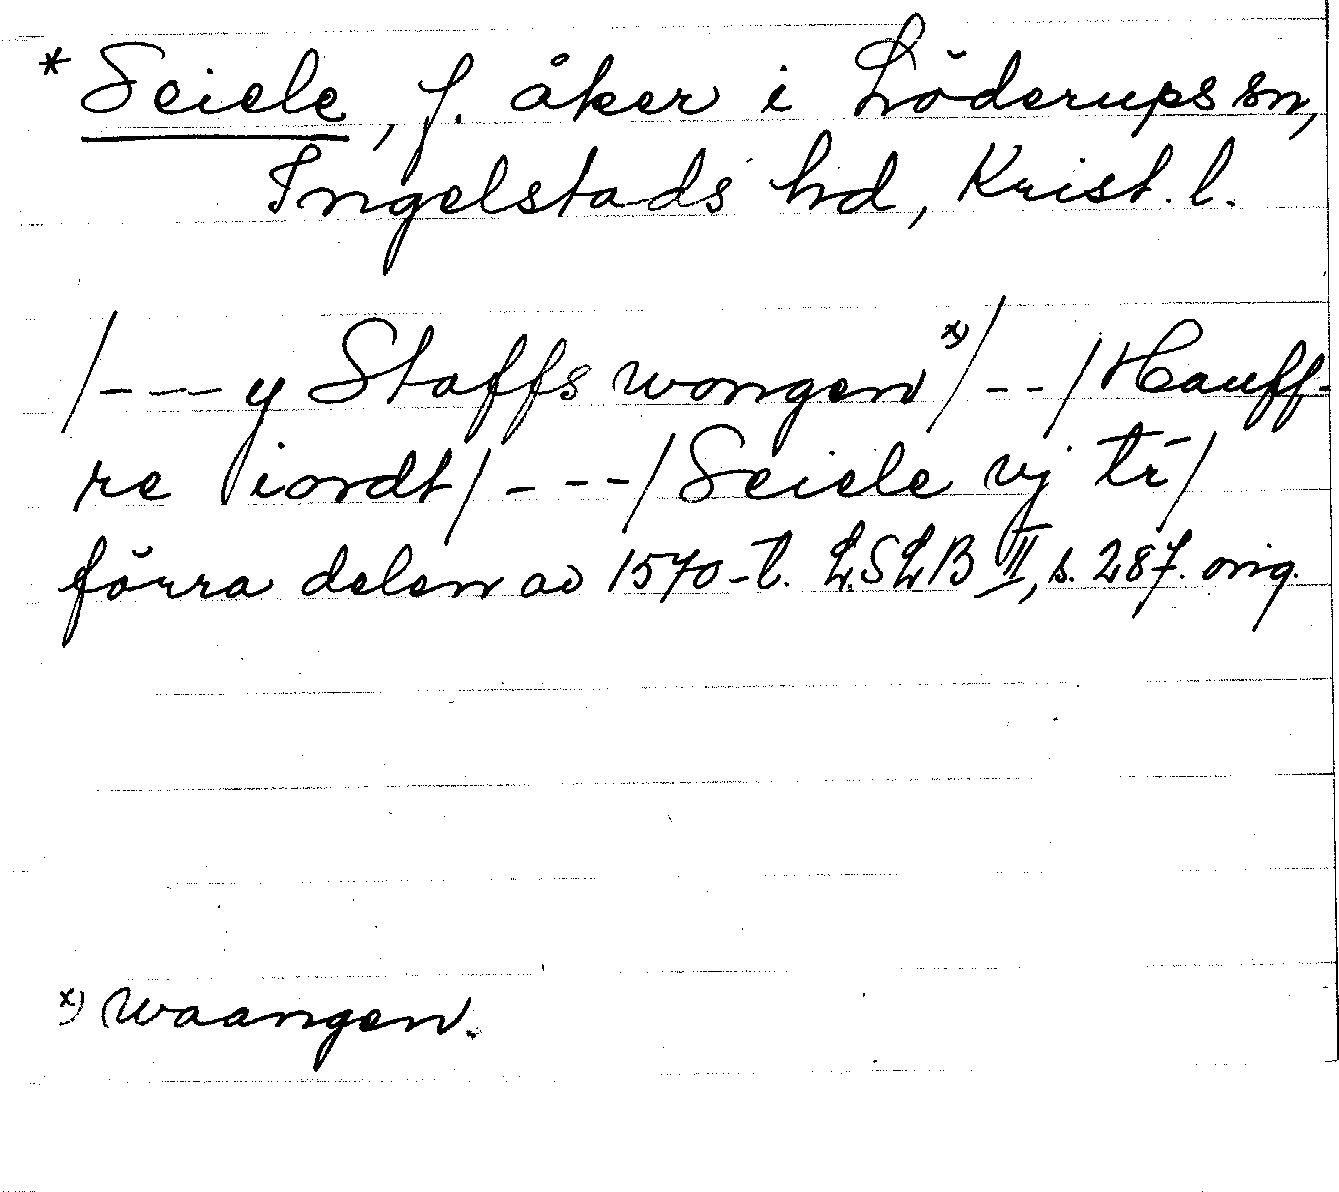 * Seiele, f. åker i Löderups sn,
Ingelstads hd, Krist. l.
/---y Staffs wongen x)/--/Hauff-
re iordt/---/Seiele vj tr/
förra delen av 1570-t. LSLB III, s. 287. orig.
x) Waangen.